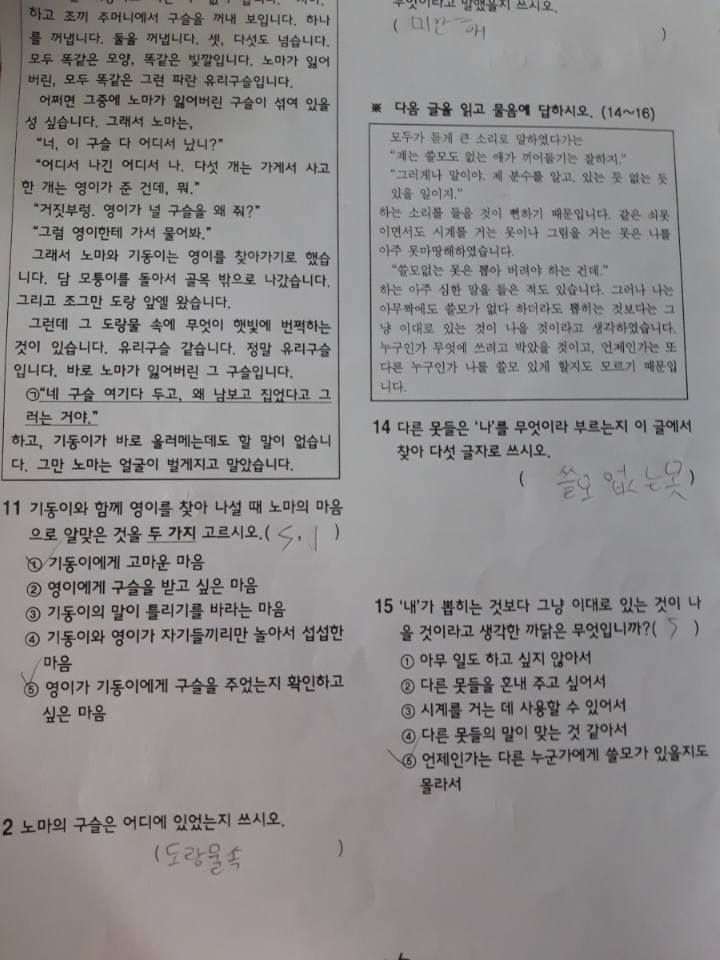 하고 조끼 주머니에서 구슬을 꺼내 보입니다. 하나
를 꺼냅니다. 둘을 꺼냅니다. 셋, 다섯도 넘습니다.
모두 똑같은 모양, 똑같은 빛깔입니다. 노마가 잃어
버린, 모두 똑같은 그런 파란 유리구슬입니다.
어쩌면 그중에 노마가 잃어버린 구슬이 섞여 있을
성 싶습니다. 그래서 노마는,
“너, 이 구슬 다 어디서 났니?”
“어디서 나긴 어디서 나. 다섯 개는 가게서 사고
한 개는 영이가 준 건데, 뭐.”
“거짓부렁. 영이가 널 구슬을 왜 줘?”
“그럼 영이한테 가서 물어봐.”
그래서 노마와 기동이는 영이를 찾아가기로 했습
니다. 담 모퉁이를 돌아서 골목 밖으로 나갔습니다.
그리고 조그만 도랑 앞엘 왔습니다.
그런데 그 도랑물 속에 무엇이 햇빛에 번쩍하는
것이 있습니다. 유리구슬 같습니다. 정말 유리구슬
입니다. 바로 노마가 잃어버린 그 구슬입니다.
㉠“네 구슬 여기다 두고, 왜 남보고 집었다고 그
러는 거야.”
하고, 기동이가 바로 을러메는데도 할 말이 없습니
다. 그만 노마는 얼굴이 벌게지고 말았습니다.
11 기동이와 함께 영이를 찾아 나설 때 노마의 마음
으로 알맞은 것을 두 가지 고르시오.( 5, 1 )
① 기동이에게 고마운 마음
② 영이에게 구슬을 받고 싶은 마음
③ 기동이의 말이 틀리기를 바라는 마음
④ 기동이와 영이가 자기들끼리만 놀아서 섭섭한
마음
⑤ 영이가 기동이에게 구슬을 주었는지 확인하고
싶은 마음
2 노마의 구슬은 어디에 있었는지 쓰시오.
( 도랑물속 )
무엇이라고 말했을지 쓰시오.
( 미안해 )
※ 다음 글을 읽고 물음에 답하시오. (14～16)
모두가 듣게 큰 소리로 말하였다가는
“쟤는 쓸모도 없는 얘가 끼어들기는 잘하지.”
“그러게나 말이야. 제 분수를 알고, 있는 듯 없는 듯
있을 일이지.”
하는 소리를 들을 것이 뻔하기 때문입니다. 같은 쇠못
이면서도 시계를 거는 못이나 그림을 거는 못은 나를
아주 못마땅해하였습니다.
“쓸모없는 못은 뽑아 버려야 하는 건데.”
하는 아주 심한 말을 들은 적도 있습니다. 그러나 나는
아무짝에도 쓸모가 없다 하더라도 뽑히는 것보다는 그
냥 이대로 있는 것이 나을 것이라고 생각하였습니다.
누구인가 무엇에 쓰려고 박았을 것이고, 언제인가는 또
다른 누구인가 나를 쓸모 있게 할지도 모르기 때문입
니다.
14 다른 못들은 ‘나’를 무엇이라 부르는지 이 글에서
찾아 다섯 글자로 쓰시오.
( 쓸모 없는못 )
15 ‘내’가 뽑히는 것보다 그냥 이대로 있는 것이 나
을 것이라고 생각한 까닭은 무엇입니까?( 5 )
① 아무 일도 하고 싶지 않아서
② 다른 못들을 혼내 주고 싶어서
③ 시계를 거는 데 사용할 수 있어서
④ 다른 못들의 말이 맞는 것 같아서
⑤ 언제인가는 다른 누군가에게 쓸모가 있을지도
몰라서